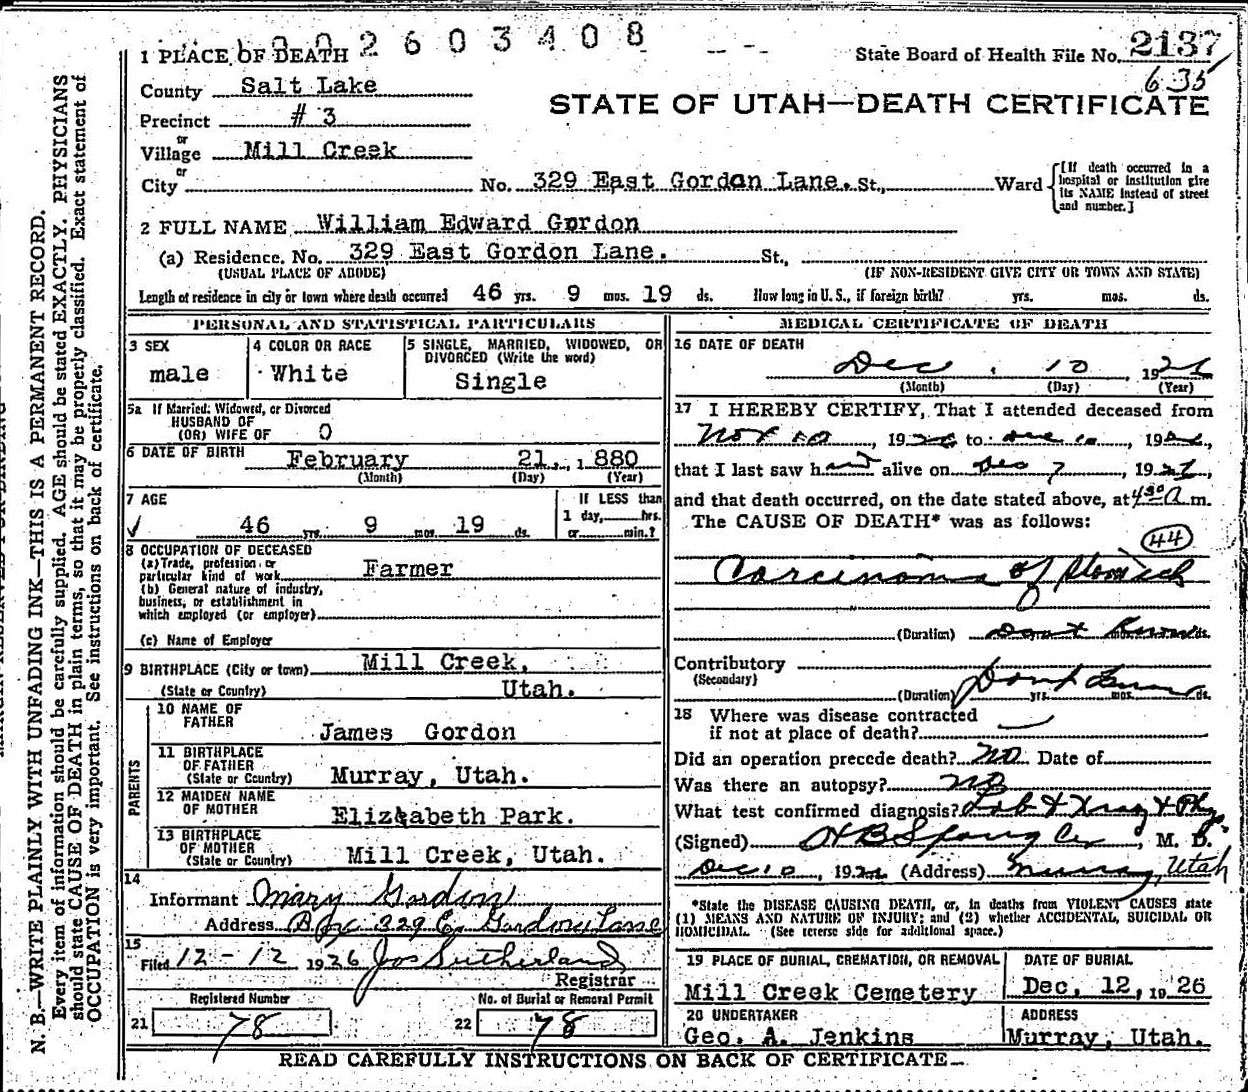 2603408
1 PLACE OF DEATH
State Board of Health File No. 2137
635
County Salt Lake
STATE OF UTAH—DEATH CERTIFICATE
Precinct # 3
or
Village Mill Creek
or
City No. 329 East Gordon Lane. St., Ward [If death occurred in a hospital or institution give its NAME instead of street and number.]
2 FULL NAME William Edward Gordon
(a) Residence, No. 329 East Gordon Lane. St.,
(USUAL PLACE OF ABODE) (IF NON-RESIDENT GIVE CITY OR TOWN AND STATE)
Length of residence in city or town where death occurred 46 yrs. 9 mos. 19 ds. How long in U. S., if foreign birth? yrs. mos. ds.
PERSONAL AND STATISTICAL PARTICULARS
3 SEX
male
4 COLOR OR RACE
White
5 SINGLE, MARRIED, WIDOWED, OR
DIVORCED (Write the word)
Single
5a If Married, Widowed, or Divorced
HUSBAND OF
(OR) WIFE OF O
6 DATE OF BIRTH February 21, 1880
(Month) (Day) (Year)
7 AGE
46 yrs. 9 mos. 19 ds.
If LESS than
1 day, hrs.
or min.?
8 OCCUPATION OF DECEASED
(a) Trade, profession or
particular kind of work Farmer
(b) General nature of industry,
business, or establishment in
which employed (or employer)
(c) Name of Employer
9 BIRTHPLACE (City or town) Mill Creek,
(State or Country) Utah.
PARENTS
10 NAME OF
FATHER James Gordon
11 BIRTHPLACE
OF FATHER
(State or Country) Murray, Utah.
12 MAIDEN NAME
OF MOTHER Elizabeth Park.
13 BIRTHPLACE
OF MOTHER
(State or Country) Mill Creek, Utah.
14
Informant Mary Gordon
Address 329 E. Gordon Lane
15
Filed 12-12 1926 Jos Sutherland
Registrar
Registered Number
21 78
No. of Burial or Removal Permit
22 78
MEDICAL CERTIFICATE OF DEATH
16 DATE OF DEATH
Dec. 10 1926
(Month) (Day) (Year)
17 I HEREBY CERTIFY, That I attended deceased from
Nov 10, 1926 to Dec 10, 1926,
that I last saw h alive on Dec 7, 1926,
and that death occurred, on the date stated above, at 4 30 A m.
The CAUSE OF DEATH* was as follows:
44
Carcinoma of Stomach
(Duration) Dont Know ds.
Contributory
(Secondary)
(Duration) Dont Know yrs. mos. ds.
18 Where was disease contracted
if not at place of death?
Did an operation precede death? No Date of
Was there an autopsy? No
What test confirmed diagnosis? Lab & Xray & Phys.
(Signed) H B , M. D.
Dec 10, 1926 (Address) Murray, Utah
*State the DISEASE CAUSING DEATH, or, in deaths from VIOLENT CAUSES state
(1) MEANS AND NATURE OF INJURY; and (2) whether ACCIDENTAL, SUICIDAL OR
HOMICIDAL. (See reverse side for additional space.)
19 PLACE OF BURIAL, CREMATION, OR REMOVAL
Mill Creek Cemetery
DATE OF BURIAL
Dec, 12, 1926
20 UNDERTAKER
Geo. A. Jenkins
ADDRESS
Murray, Utah.
READ CAREFULLY INSTRUCTIONS ON BACK OF CERTIFICATE
N. B.—WRITE PLAINLY WITH UNFADING INK—THIS IS A PERMANENT RECORD.
Every item of information should be carefully supplied. AGE should be stated EXACTLY. PHYSICIANS
should state CAUSE OF DEATH in plain terms, so that it may be properly classified. Exact statement of
OCCUPATION is very important. See instructions on back of certificate.